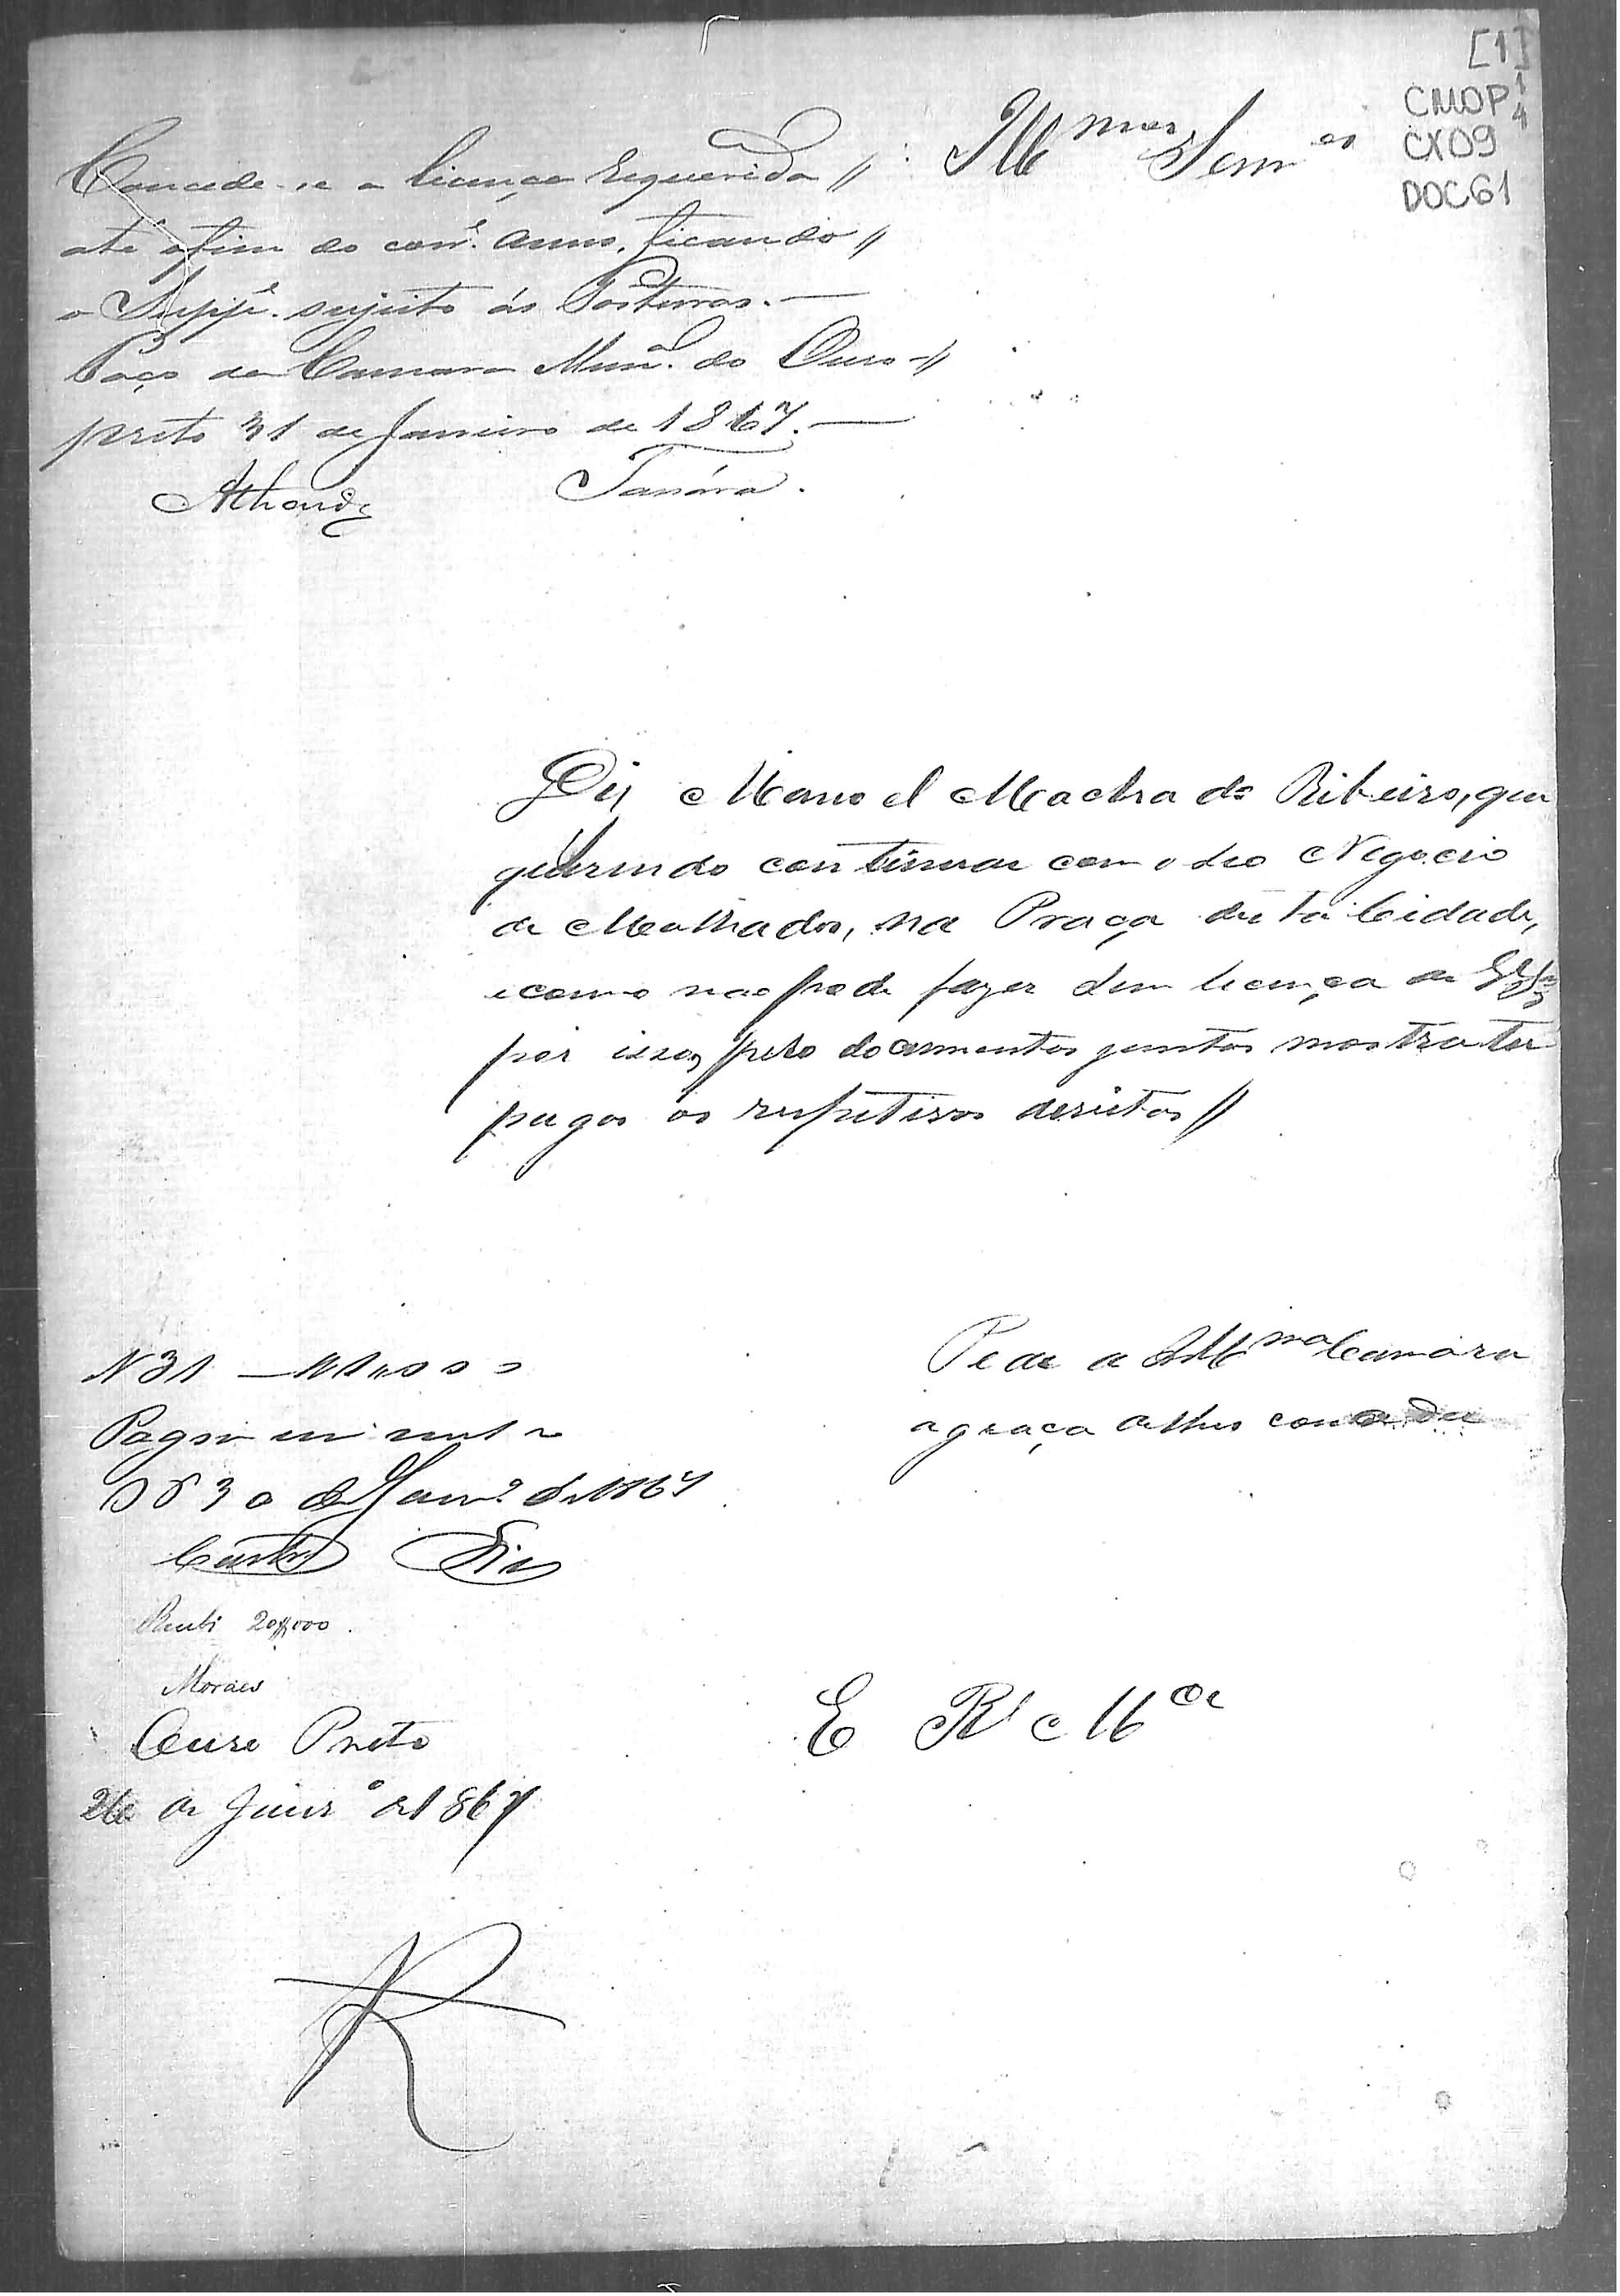 [1]
CMOP 1/4
CX09
DOC61
Illmos Senres
Concede-se a licença requerida //
até o fim do corre. anno, ficando //
o Suppe. sujeito ás Posturas. —
Paço da Camara Munal. do Ouro-//
preto 31 de Janeiro de 1867. —
Diz Manoel Machado Ribeiro, que
querendo continuar com o seo Negocio
de Molhados, na Praça desta Cidade,
e como não pode fazer sem licença de
por isso, pelo documentos juntos mostra ter
pagos os respetivos dereitos //
Pede a Illma Camara
a graça
N 31 — 11"000
Pagou
OP 30 de Janro de 1867
Castro Dias
Recebi 20$000.
Moraes
Ouro Preto
26 de Janro de 1867
E R Mce